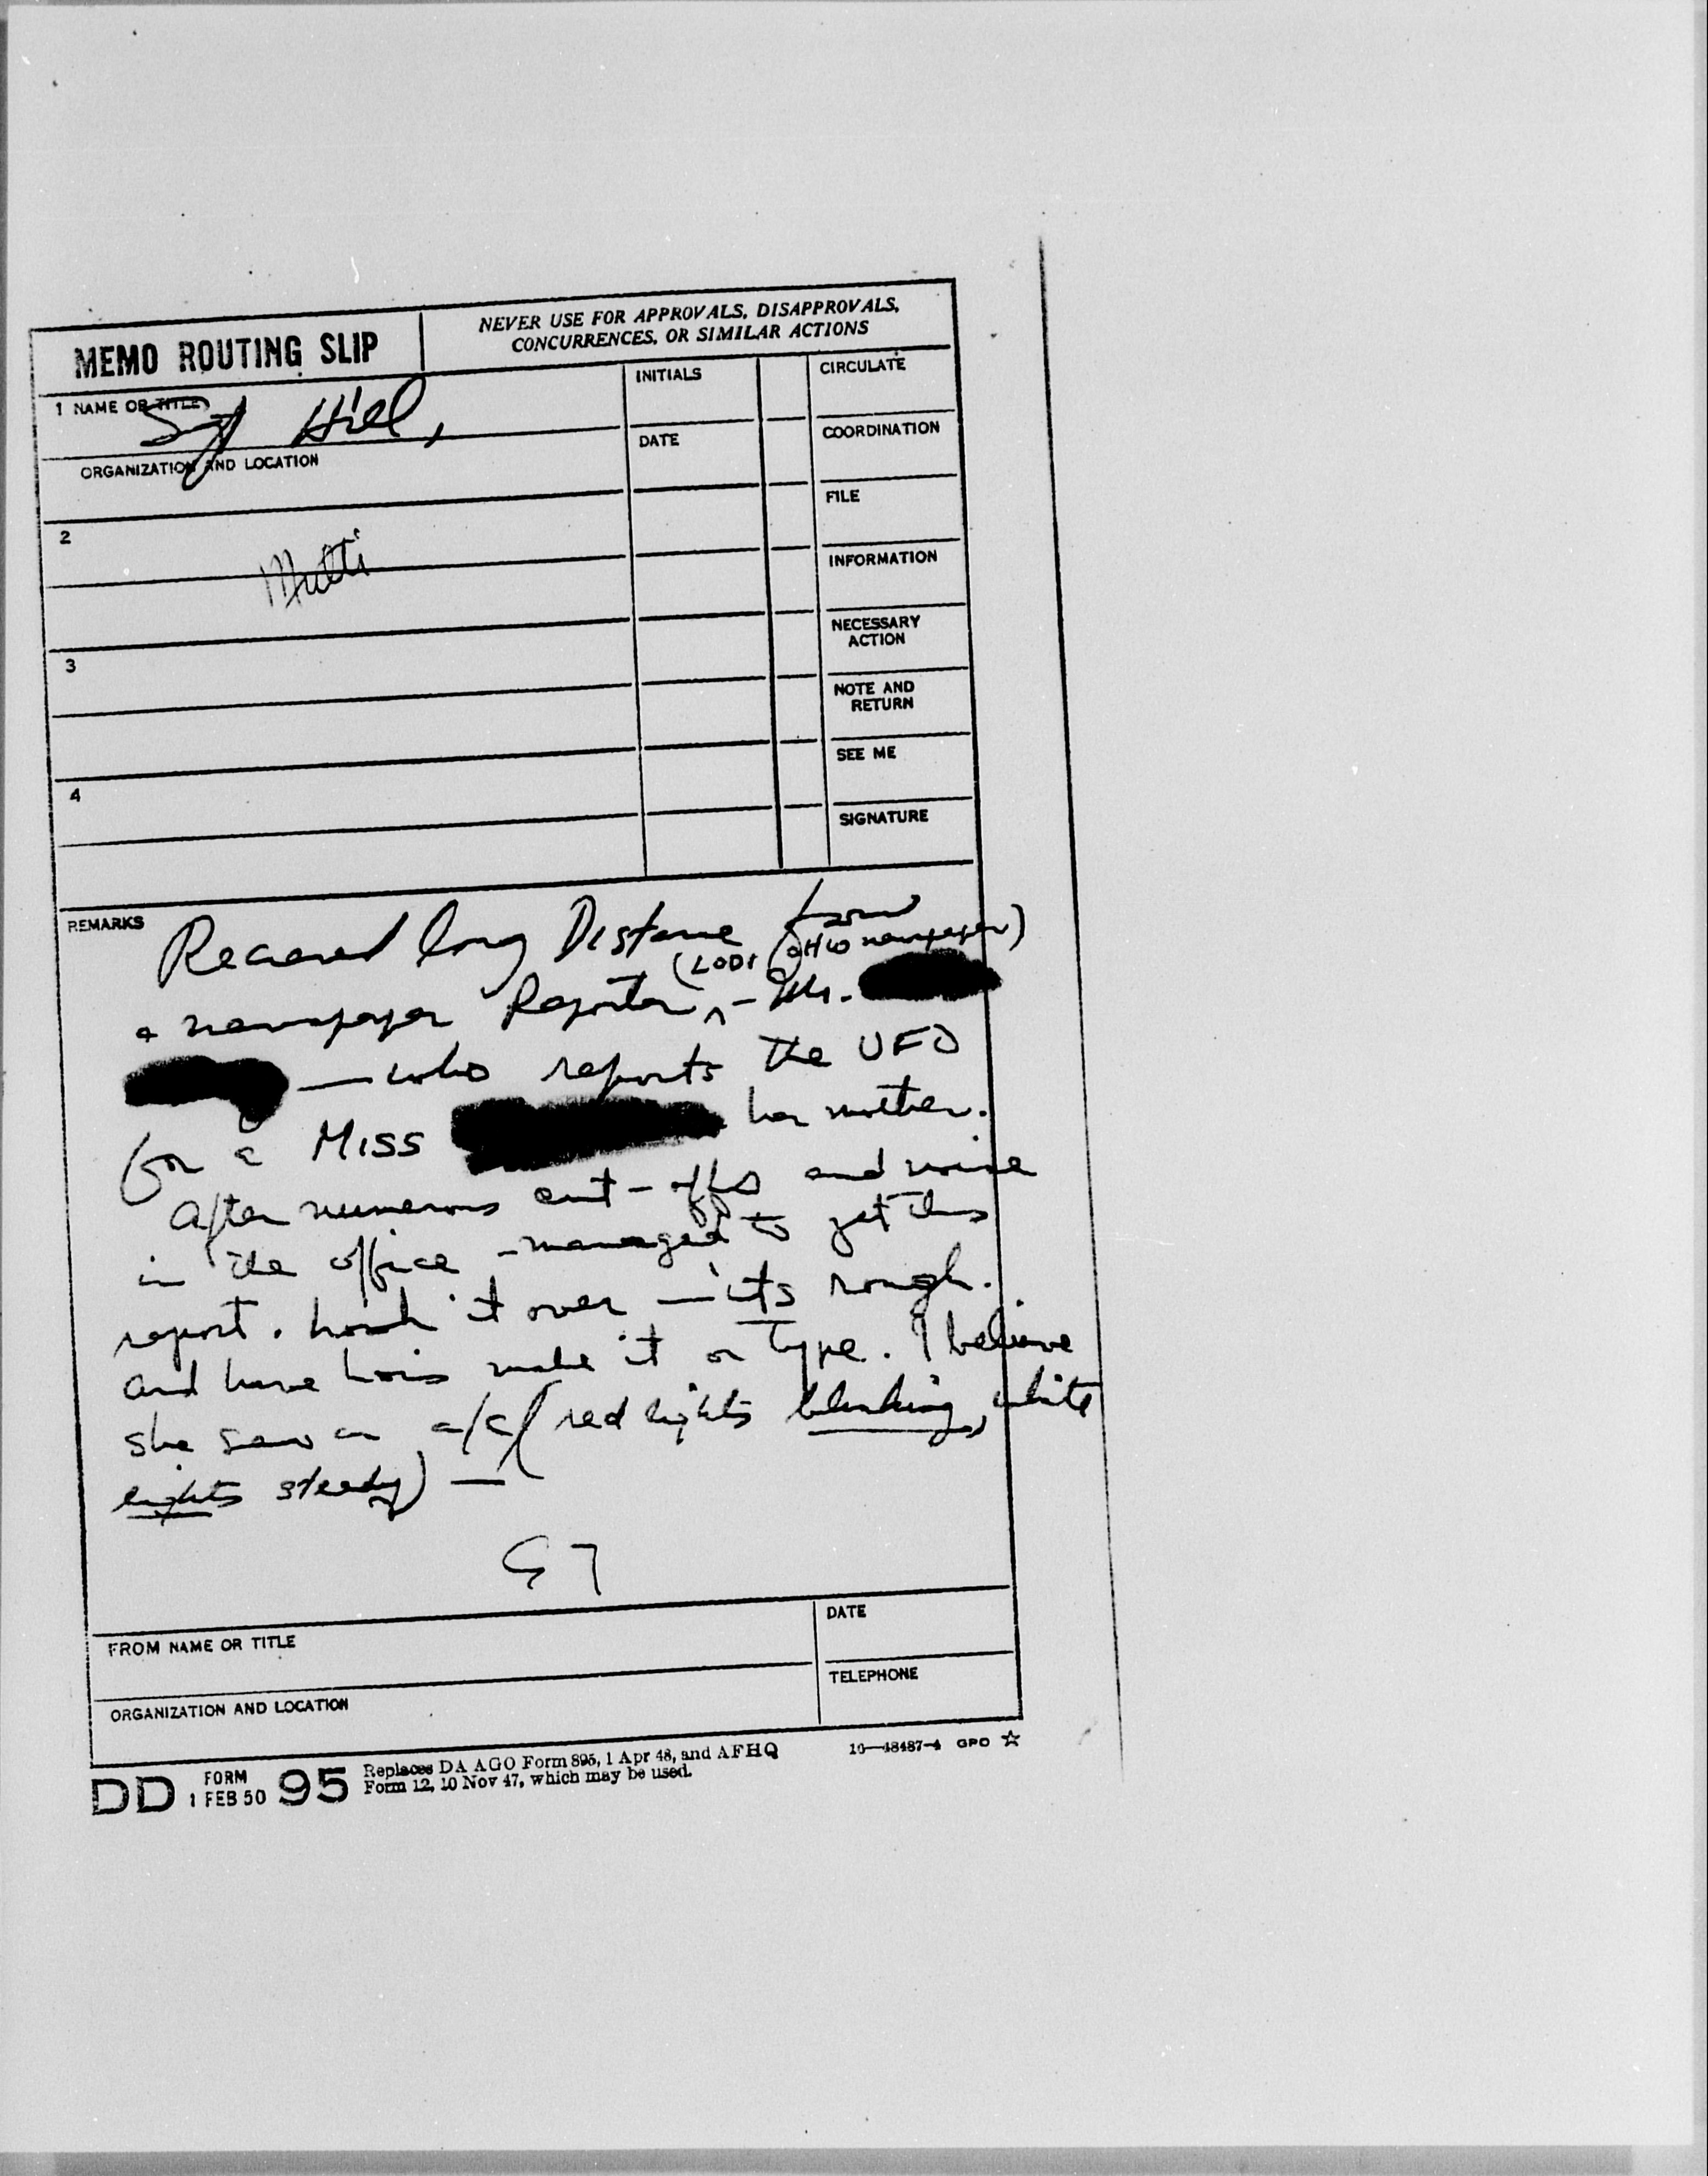 MEMO ROUTING SLIP
NEVER USE FOR APPROVALS, DISAPPROVALS,
CONCURRENCES, OR SIMILAR ACTIONS
1 NAME OR TITLE
Sgt Hill,
INITIALS
CIRCULATE
ORGANIZATION AND LOCATION
DATE
COORDINATION
FILE
2
INFORMATION
NECESSARY
ACTION
3
NOTE AND
RETURN
SEE ME
4
SIGNATURE
REMARKS
Received long Distance from
(LODI OHIO newspaper)
a newspaper Reporter, - Mr.
— who reports the UFO
for a MISS her mother.
After numerous cut-offs and noise
in the office - managed to get this
report. it over — its rough.
and have make it or type. I believe
she saw an a/c (red lights blinking, white
lights steady) —
FROM NAME OR TITLE
DATE
ORGANIZATION AND LOCATION
TELEPHONE
DD FORM 1 FEB 50 95
Replaces DA AGO Form 895, 1 Apr 48, and AFHQ
Form 12, 10 Nov 47, which may be used.
16—48487-4 GPO